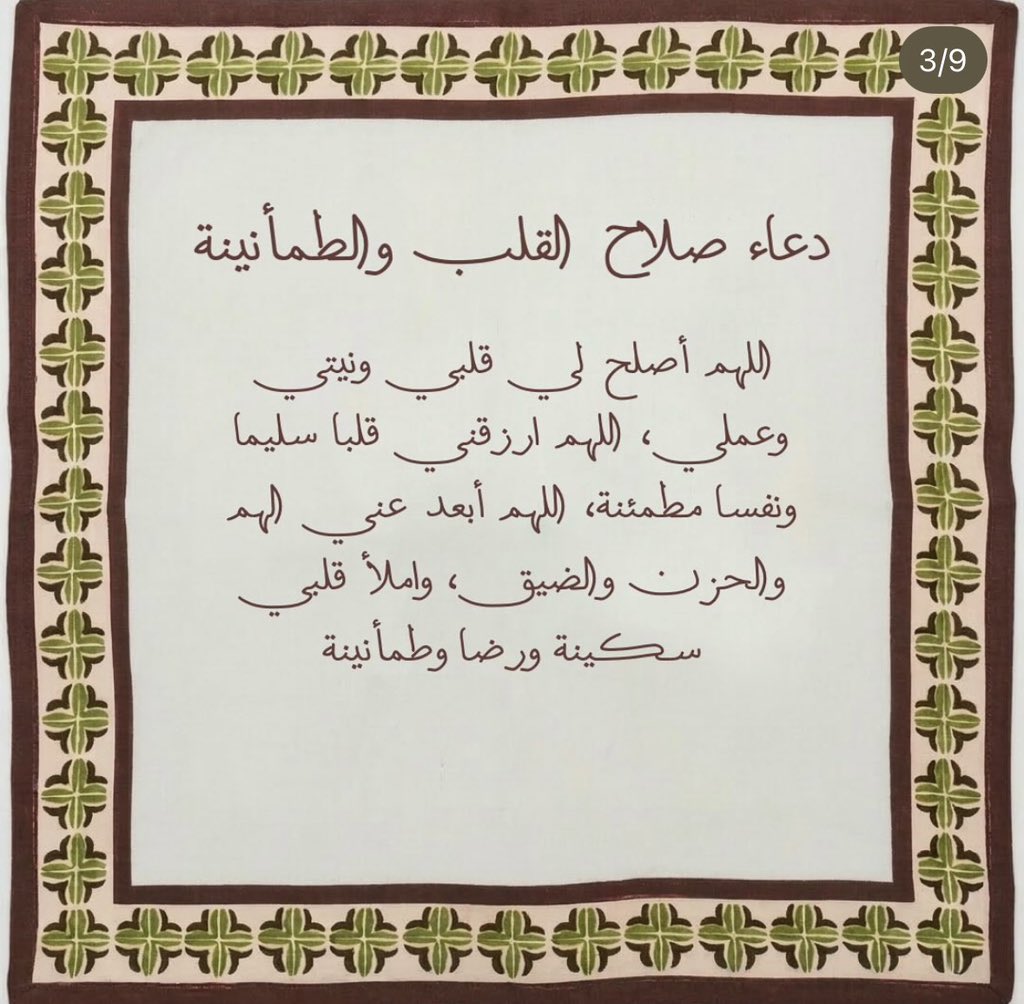 3/9
دعاء صلاح القلب والطمأنينة
اللهم أصلح لي قلبي ونيتي
وعملي، اللهم ارزقني قلبا سليما
ونفسا مطمئنة، اللهم أبعد عني الهم
والحزن والضيق، واملأ قلبي
سكينة ورضا وطمأنينة